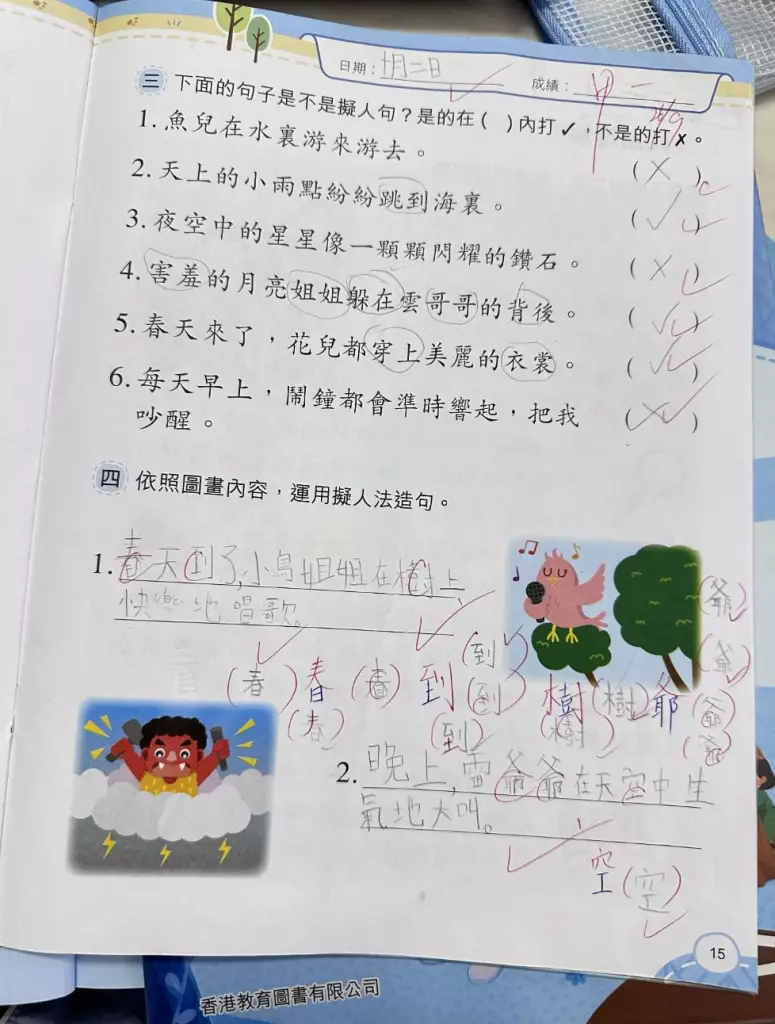 日期：十月二日 成績：甲一
三 下面的句子是不是擬人句？是的在( )內打✓，不是的打✗。
1. 魚兒在水裏游來游去。 (✗)
2. 天上的小雨點紛紛跳到海裏。 (✓)
3. 夜空中的星星像一顆顆閃耀的鑽石。 (✗)
4. 害羞的月亮姐姐躲在雲哥哥的背後。 (✓)
5. 春天來了，花兒都穿上美麗的衣裳。 (✓)
6. 每天早上，鬧鐘都會準時響起，把我
吵醒。 (✗)
四 依照圖畫內容，運用擬人法造句。
1. 春天到了,小鳥姐姐在樹上
快樂地唱歌。
(爺)
(爺)
(到)
(春) 春 (春) 到 (到) 樹 (樹) 爺 (爺)
(春) (到) (樹) (爺)
2. 晚上,雷爺爺在天空中生
氣地大叫。
空 (空)
15
香港教育圖書有限公司